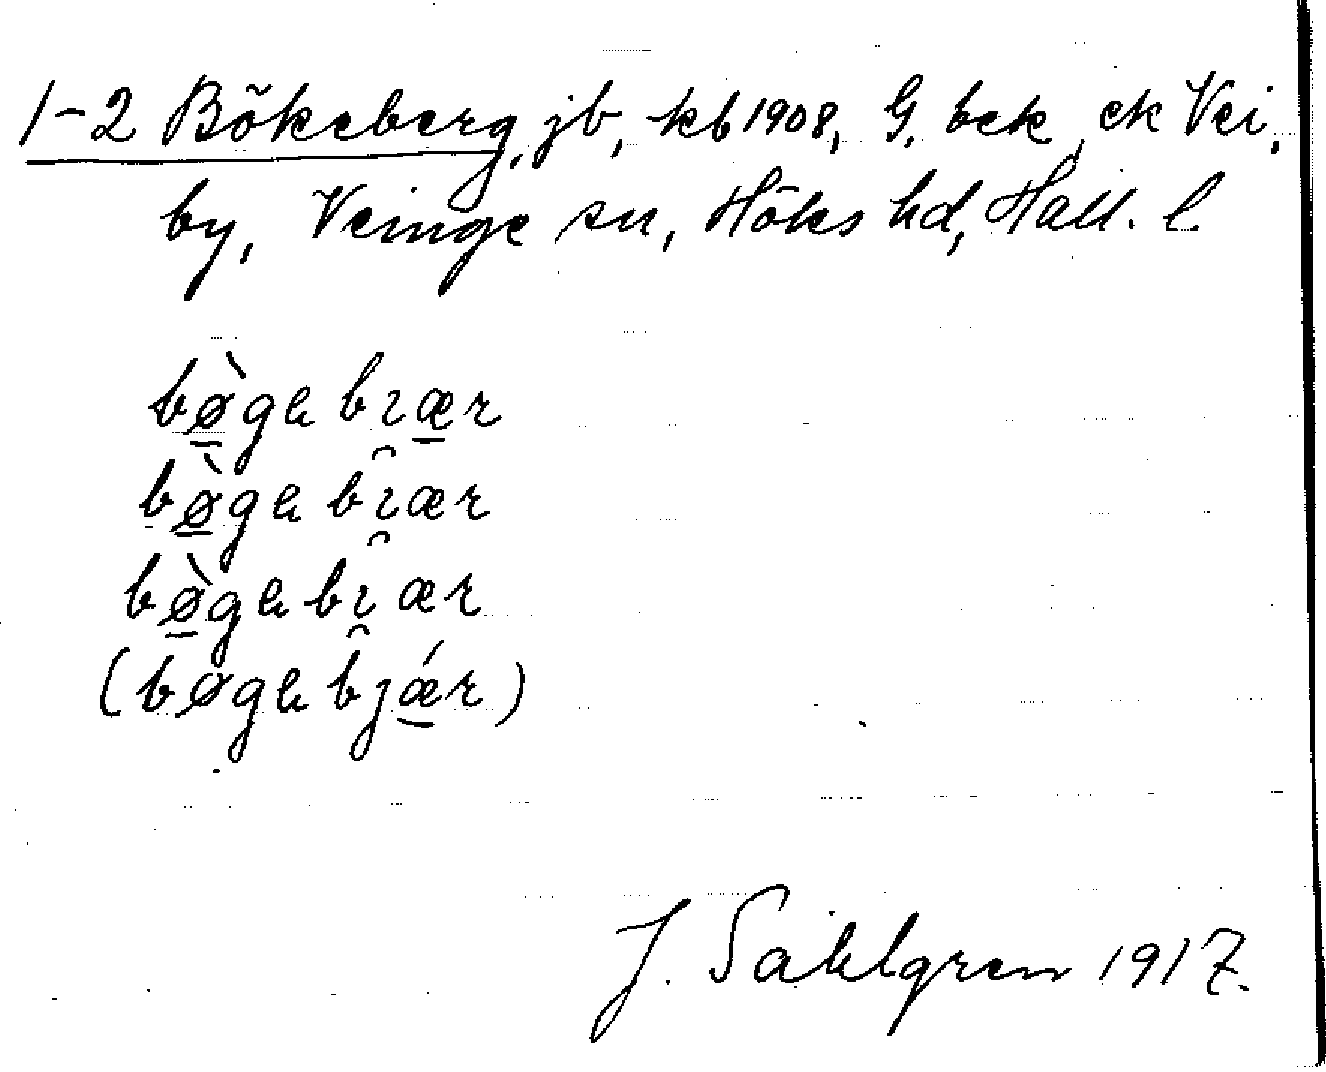 1-2 Bökeberg, jb, kb 1908, G. bek, ek Vei.
by, Veinge sn, Höks hd, Hall. l.
bø̱̀ga bɿæ̱r
bø̱̀ga bɿ̑ær
bø̱̀ga bɿ̑ær
(bøga bjǽ̱r)
J. Sahlgren 1917.